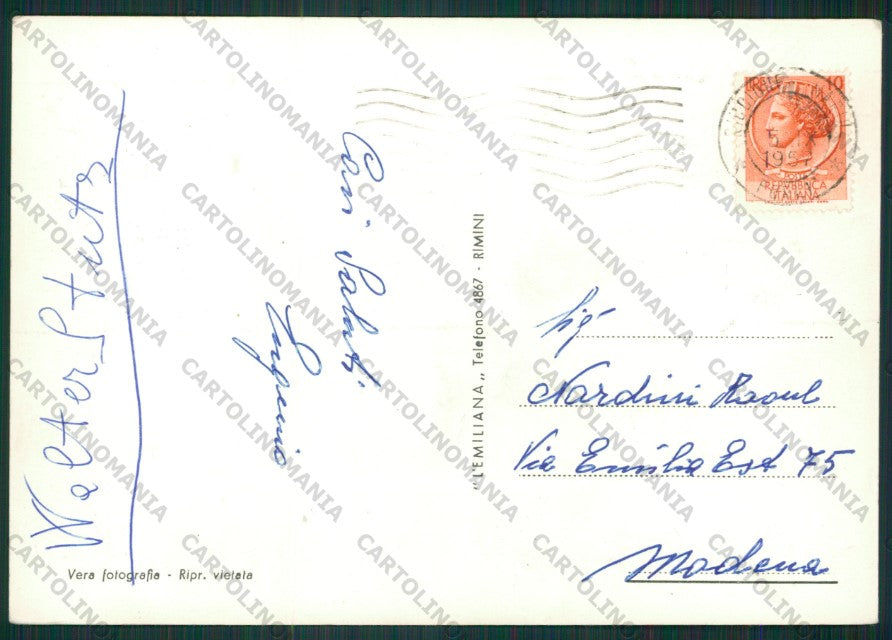 Walter Stutz
Cari Saluti
Eugenio
"L'EMILIANA„ Telefono 4867 - RIMINI
Vera fotografia - Ripr. vietata
10
5
195
REPUBBLICA
ITALIANA
Sig.
Nardini Raoul
Via Emilia Est 75
Modena
CARTOLINOMANIA